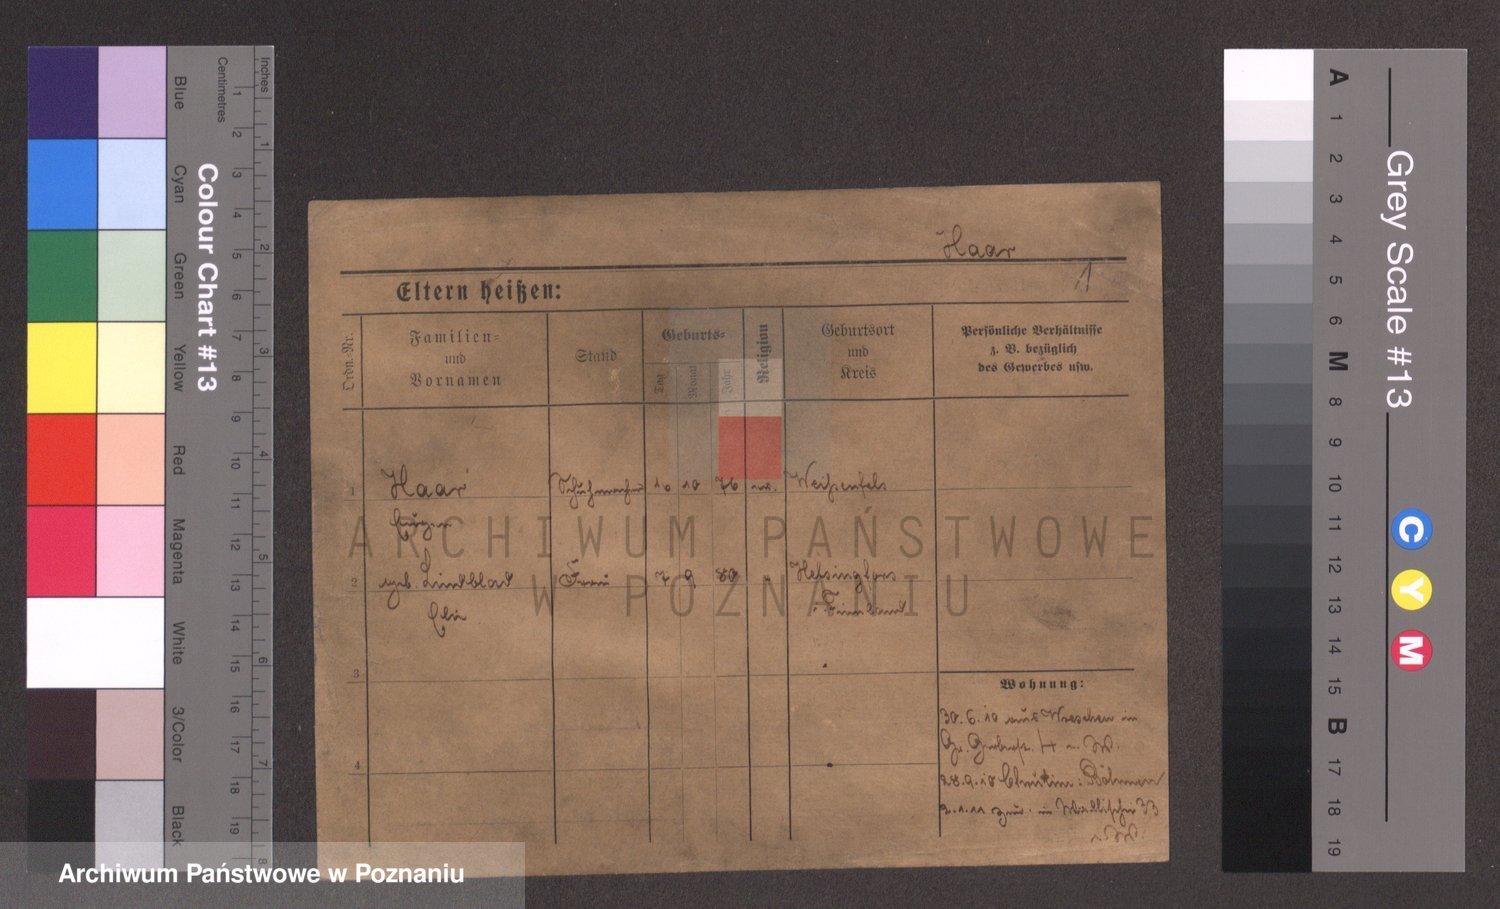 Inches
Centimetres
Colour Chart #13
Blue
Cyan
Green
Yellow
Red
Magenta
White
3/Color
Black
1 2 3 4 5 6 7 8 9 10 11 12 13 14 15 16 17 18 19
1 2 3 4 5 6 7 8
Haar
1
Eltern heißen:
Ordn.-Nr.
Familien-
und
Vornamen
Stand
Geburts-
Tag
Monat
Jahr
Religion
Geburtsort
und
Kreis
Persönliche Verhältnisse
z. B. bezüglich
des Gewerbes usw.
1 Haar Schuhmacher 10 10 76 Weißenfels
Eugen
2 geb. Lindblad Frau 7 9 80 Helsingfors
Finnland
3
4
Wohnung:
30. 6. 10 aus Wreschen in
28.9.10 Böhmen
2.1.11 zur. in Wallischei 33
ARCHIWUM PAŃSTWOWE
W POZNANIU
Archiwum Państwowe w Poznaniu
Grey Scale #13
A 1 2 3 4 5 6 M 8 9 10 11 12 13 14 15 B 17 18 19
C
Y
M